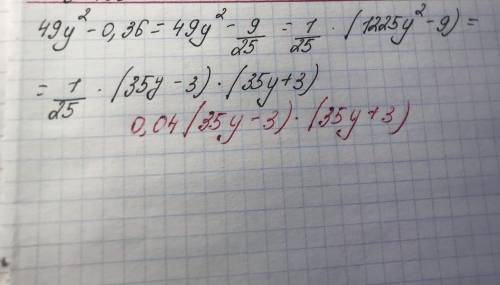 49y² - 0,36 = 49y² - 9/25 = 1/25 · (1225y² - 9) =
= 1/25 · (35y - 3) · (35y + 3)
0,04 (35y - 3) · (35y + 3)